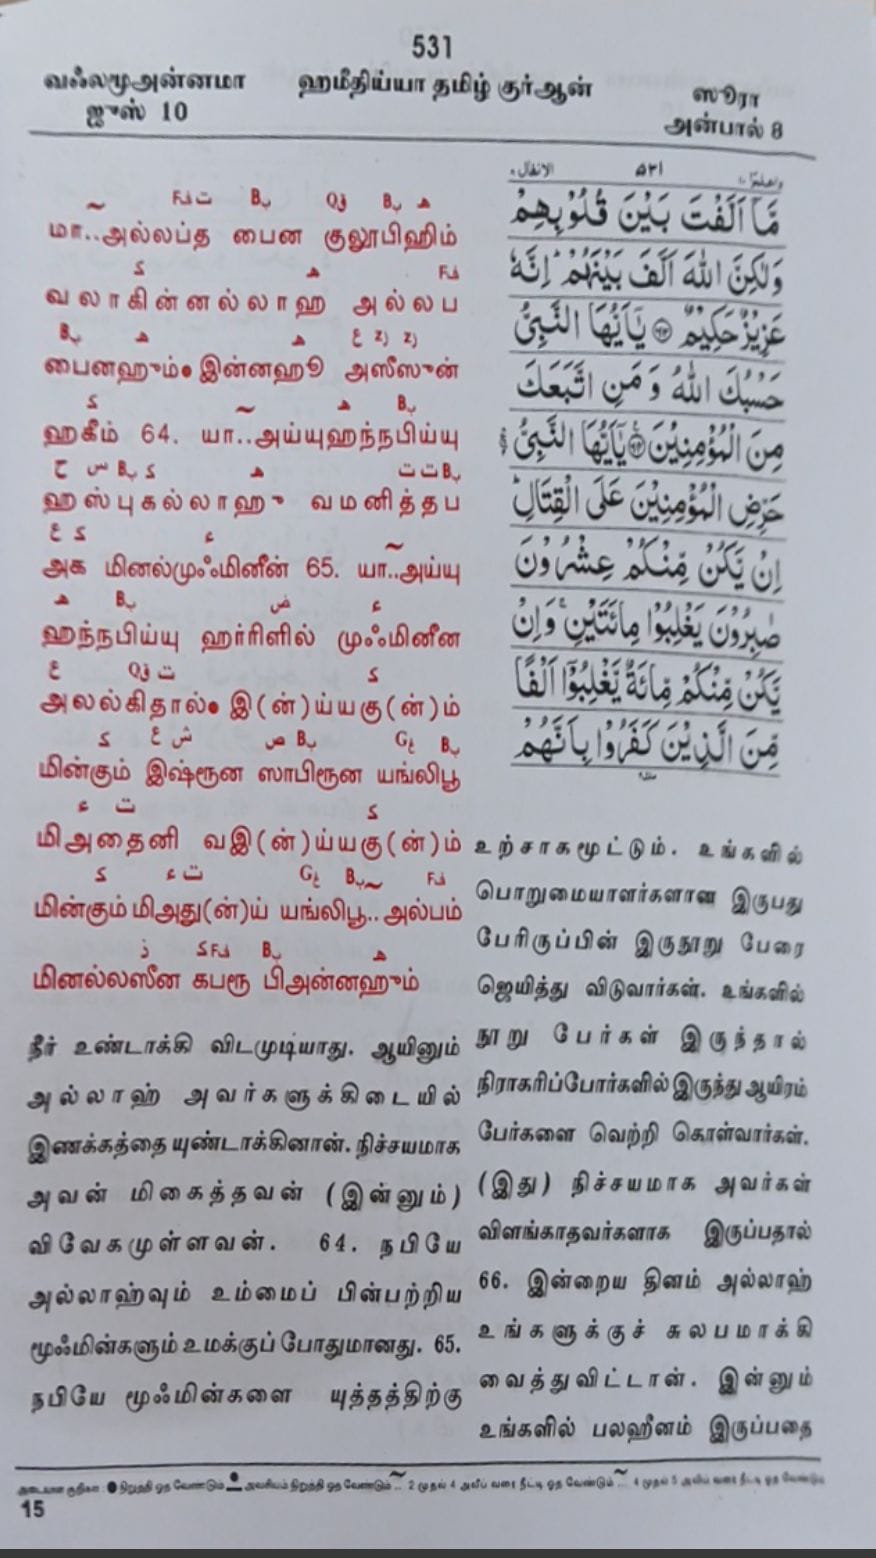 531
வஃலமூஅன்னமா ஹமீதிய்யா தமிழ் குர்ஆன் ஸூரா
ஜுஸ் 10 அன்பால் 8
الانفال ٨ ٥٣١ واعلموا ١٠
مَّاۤ اَلَّفْتَ بَيْنَ قُلُوْبِهِمْ
وَلٰكِنَّ اللّٰهَ اَلَّفَ بَيْنَهُمْ ؕ اِنَّهٗ
عَزِيْزٌ حَكِيْمٌ ۝۶۳ يٰۤاَيُّهَا النَّبِىُّ
حَسْبُكَ اللّٰهُ وَ مَنِ اتَّبَعَكَ
مِنَ الْمُؤْمِنِيْنَ ۝۶۴ يٰۤاَيُّهَا النَّبِىُّ
حَرِّضِ الْمُؤْمِنِيْنَ عَلَى الْقِتَالِ ؕ
اِنْ يَّكُنْ مِّنْكُمْ عِشْرُوْنَ
صٰبِرُوْنَ يَغْلِبُوْا مِائَتَيْنِ ۚ وَاِنْ
يَّكُنْ مِّنْكُمْ مِّائَةٌ يَّغْلِبُوْۤا اَلْفًا
مِّنَ الَّذِيْنَ كَفَرُوْا بِاَنَّهُمْ
மா..அல்லப்த பைன குலூபிஹிம்
வலாகின்னல்லாஹ அல்லப
பைனஹும்● இன்னஹூ அஸீஸுன்
ஹகீம் 64. யா..அய்யுஹந்நபிய்யு
ஹஸ்புகல்லாஹு வமனித்தப
அக மினல்முஃமினீன் 65. யா..அய்யு
ஹந்நபிய்யு ஹர்ரிளில் முஃமினீன
அலல்கிதால்● இ(ன்)ய்யகு(ன்)ம்
மின்கும் இஷ்ரூன ஸாபிரூன யங்லிபூ
மிஅதைனி வஇ(ன்)ய்யகு(ன்)ம்
மின்கும் மிஅது(ன்)ய் யங்லிபூ..அல்பம்
மினல்லஸீன கபரூ பிஅன்னஹும்
நீர் உண்டாக்கி விடமுடியாது. ஆயினும்
அல்லாஹ் அவர்களுக்கிடையில்
இணக்கத்தை யுண்டாக்கினான். நிச்சயமாக
அவன் மிகைத்தவன் (இன்னும்)
விவேகமுள்ளவன். 64. நபியே
அல்லாஹ்வும் உம்மைப் பின்பற்றிய
மூஃமின்களும் உமக்குப் போதுமானது. 65.
நபியே மூஃமின்களை யுத்தத்திற்கு
உற்சாகமூட்டும். உங்களில்
பொறுமையாளர்களான இருபது
பேரிருப்பின் இருநூறு பேரை
ஜெயித்து விடுவார்கள். உங்களில்
நூறு பேர்கள் இருந்தால்
நிராகரிப்போர்களில் இருந்து ஆயிரம்
பேர்களை வெற்றி கொள்வார்கள்.
(இது) நிச்சயமாக அவர்கள்
விளங்காதவர்களாக இருப்பதால்
66. இன்றைய தினம் அல்லாஹ்
உங்களுக்குச் சுலபமாக்கி
வைத்துவிட்டான். இன்னும்
உங்களில் பலஹீனம் இருப்பதை
அடையாள குறிகள : ● நிறுத்தி ஓத வேண்டும் அவசியம் நிறுத்தி ஓத வேண்டும் ~.. 2 முதல் 4 அலீப் வரை நீட்டி ஓத வேண்டும் ~.. 4 முதல் 5 அலீப் வரை நீட்டி ஓத வேண்டும்
15